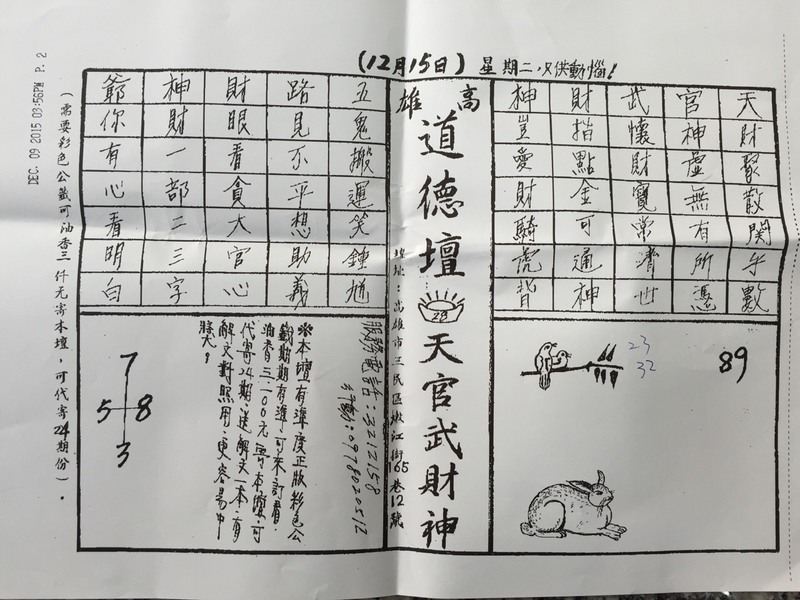 (12月15日)星期二,只供動惱!
天財聚散関乎數
官神虛無有所憑
武懷財寶常濟世
財指點金可通神
神豈愛財騎虎背
89
23
32
高雄
道德壇
28
天官武財神
壇址:高雄市三民區嫩江街165巷12號
五鬼搬運笑鍾馗
路見不平想助義
財眼看貪大官心
神財一部二三字
爺你有心看明白
服務電話:3212158
行動:0978020512
※本壇有準度正版彩色公
籤期期有準,可來訂看,
油香三.一00元寄本壇,可
代寄24期,送解文一本,有
解文對照用,更容易中
勝大!
7
5 8
3
(需要彩色公籤可油香三仟元寄本壇,可代寄24期份)。
DEC. 09 2015 03:56PM P. 2